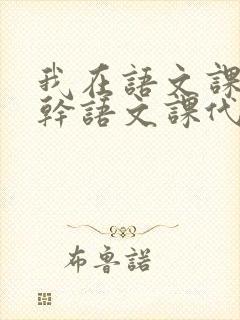 我在語文課
幹語文課代
布魯諾